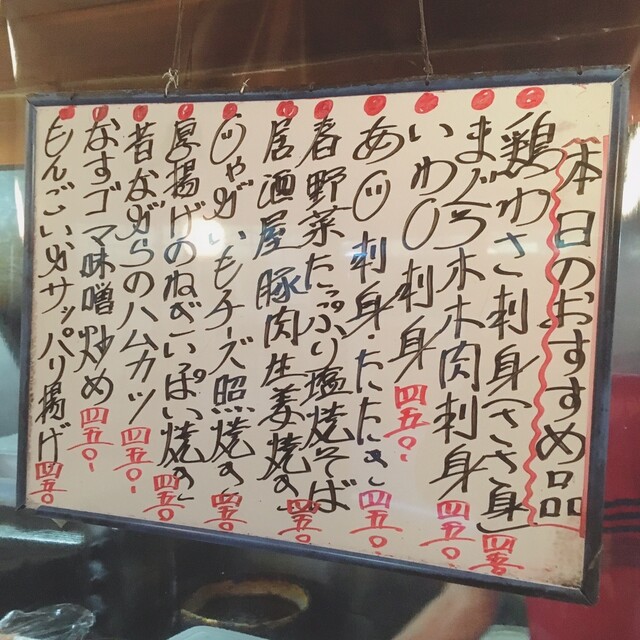 本日のおすすめ品
鶏わさ刺身(ささ身) 四五〇
まぐろホホ肉刺身 四五〇
いわし刺身 四五〇
あじ刺身・たたき 四五〇
春野菜たっぷり塩焼そば 四五〇
居酒屋豚肉生姜焼き 四五〇
じゃがいもチーズ照焼き 四五〇
厚揚げのねぎいっぱい焼き 四五〇
昔ながらのハムカツ 四五〇
なすゴマ味噌炒め 四五〇
もんごいかサッパリ揚げ 四五〇